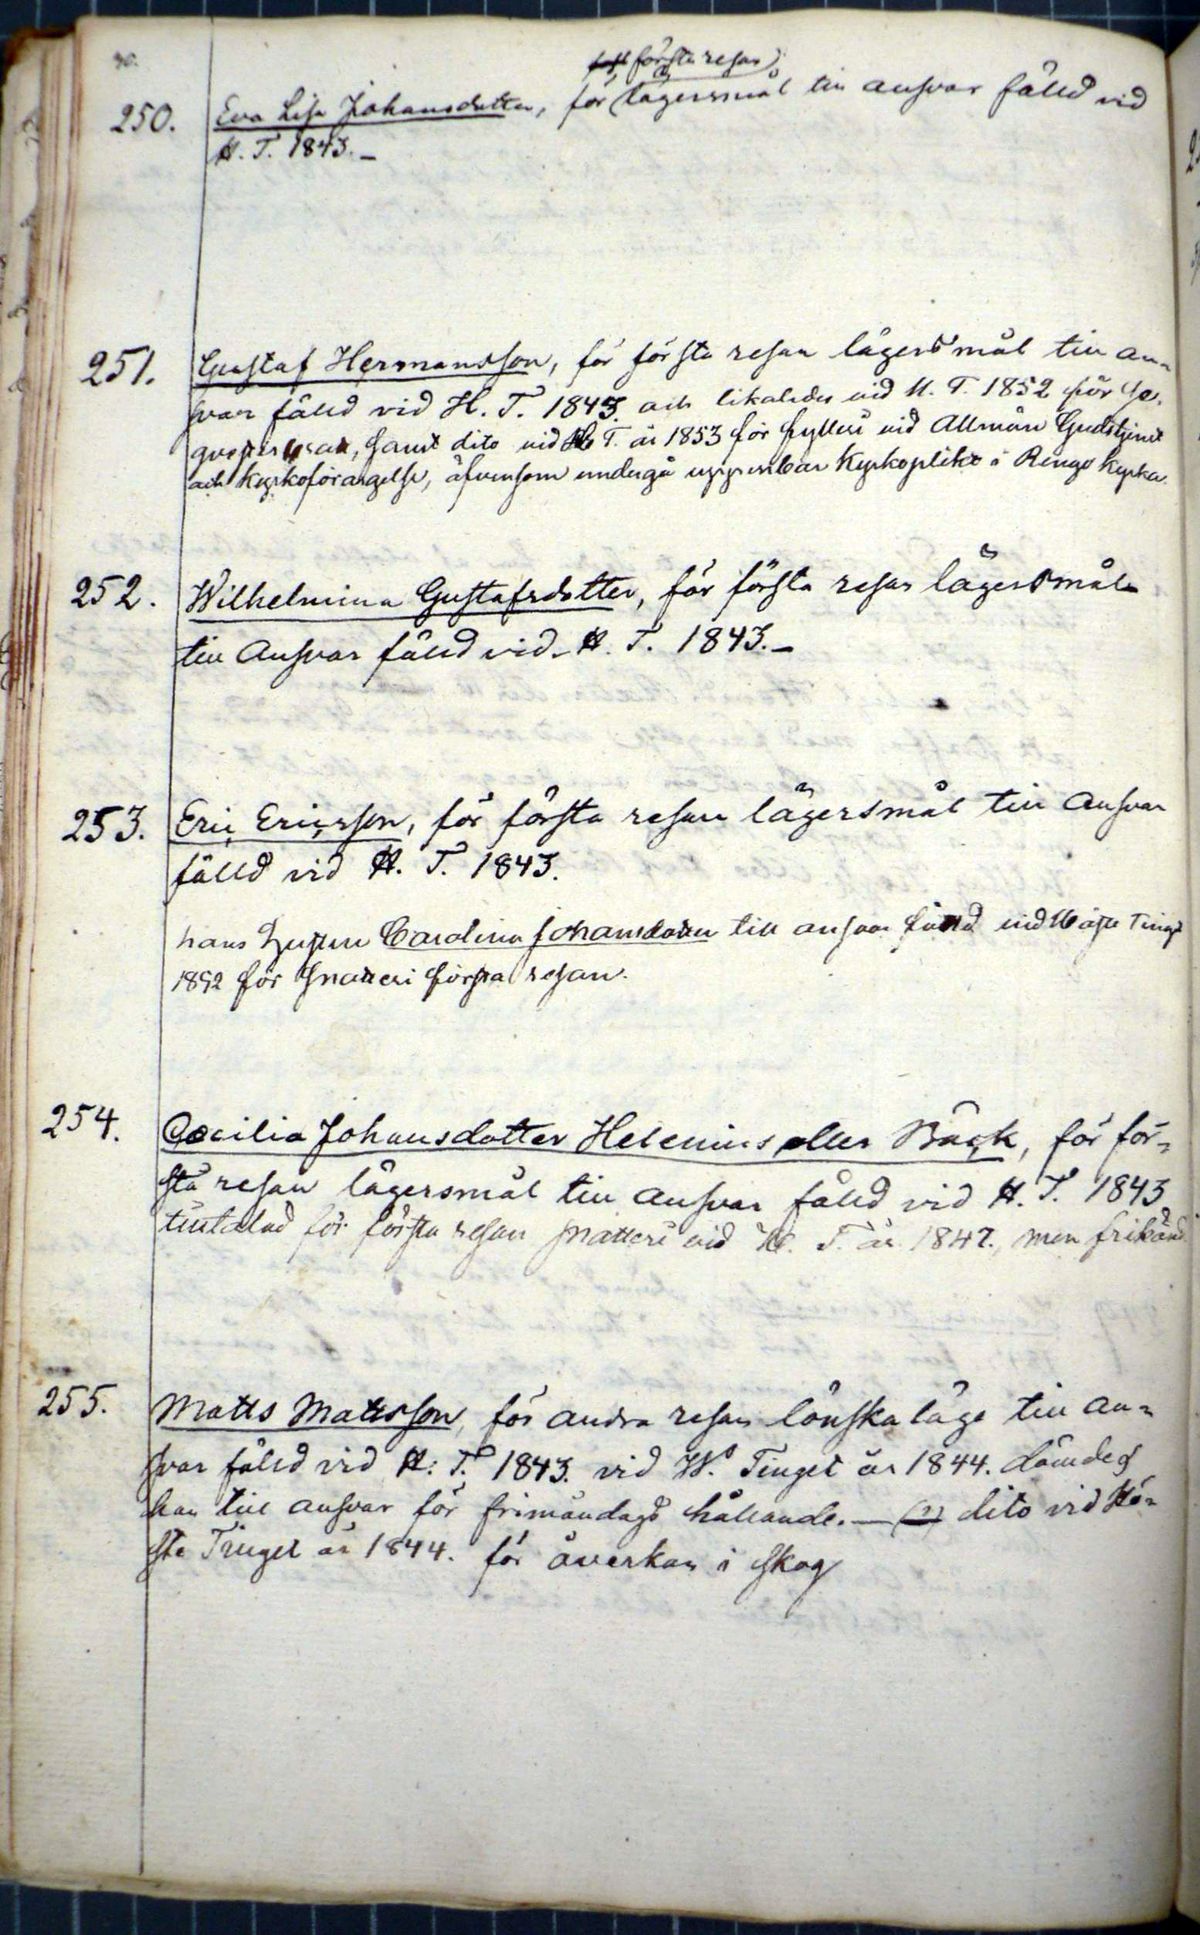 250. Eva Lisa Johansdotter, för första resan lägersmål till ansvar fälld vid
H. T. 1843.
251. Gustaf Hermansson, för första resan lägersmål till an-
svar fälld vid H. T. 1843 och likaledes vid H. T. 1852 för
samt dito vid H T. år 1853 för fylleri vid Allmän Gudstjenst
och Kyrkoförargelse, äfvensom undergå uppenbar Kyrkoplikt i Rengo kyrka.
252. Wilhelmina Gustafsdotter, för första resan lägersmål
till Ansvar fälld vid H. T. 1843.
253. Eric Ericsson, för första resan lägersmål till Ansvar
fälld vid H. T. 1843.
hans hustru Carolina Johansdotter till ansvar fälld vid Höste Tinget
1852 för snatteri första resan.
254. Cæcilia Johansdotter Helenius eller Bäck, för för-
sta resan lägersmål till Ansvar fälld vid H. T. 1843
tilltalad för första resan snatteri vid H. T. år 1847., men frikänd
255. Matts Mattsson, för andra resan lönskaläge till an-
svar fälld vid H. T. 1843. vid W. Tinget år 1844. dömdes
han till ansvar för frimåndags hållande. — dito vid Hö-
ste Tinget år 1844. för åverkan i skog